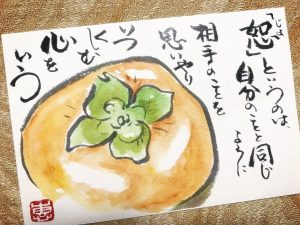 じょ
「恕」というのは、
自分のことと同じ
ように
相手のことを
思いやり
いつ
くしむ
心を
いう